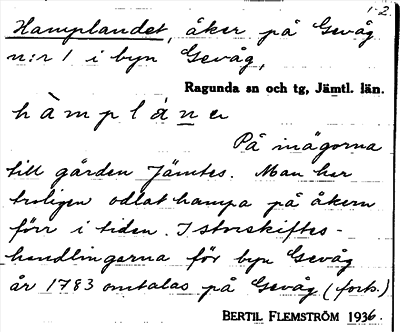 1-2
Hamplandet, åker på Gevåg
n:r 1 i byn Gevåg,
Ragunda sn och tg, Jämtl. län.
hàmplánɐ
På inägorna
till gården Jämtes. Man har
troligen odlat hampa på åkern
förr i tiden. I storskiftes-
handlingarna för byn Gevåg
år 1783 omtalas på Gevåg (forts.)
BERTIL FLEMSTRÖM 1936.